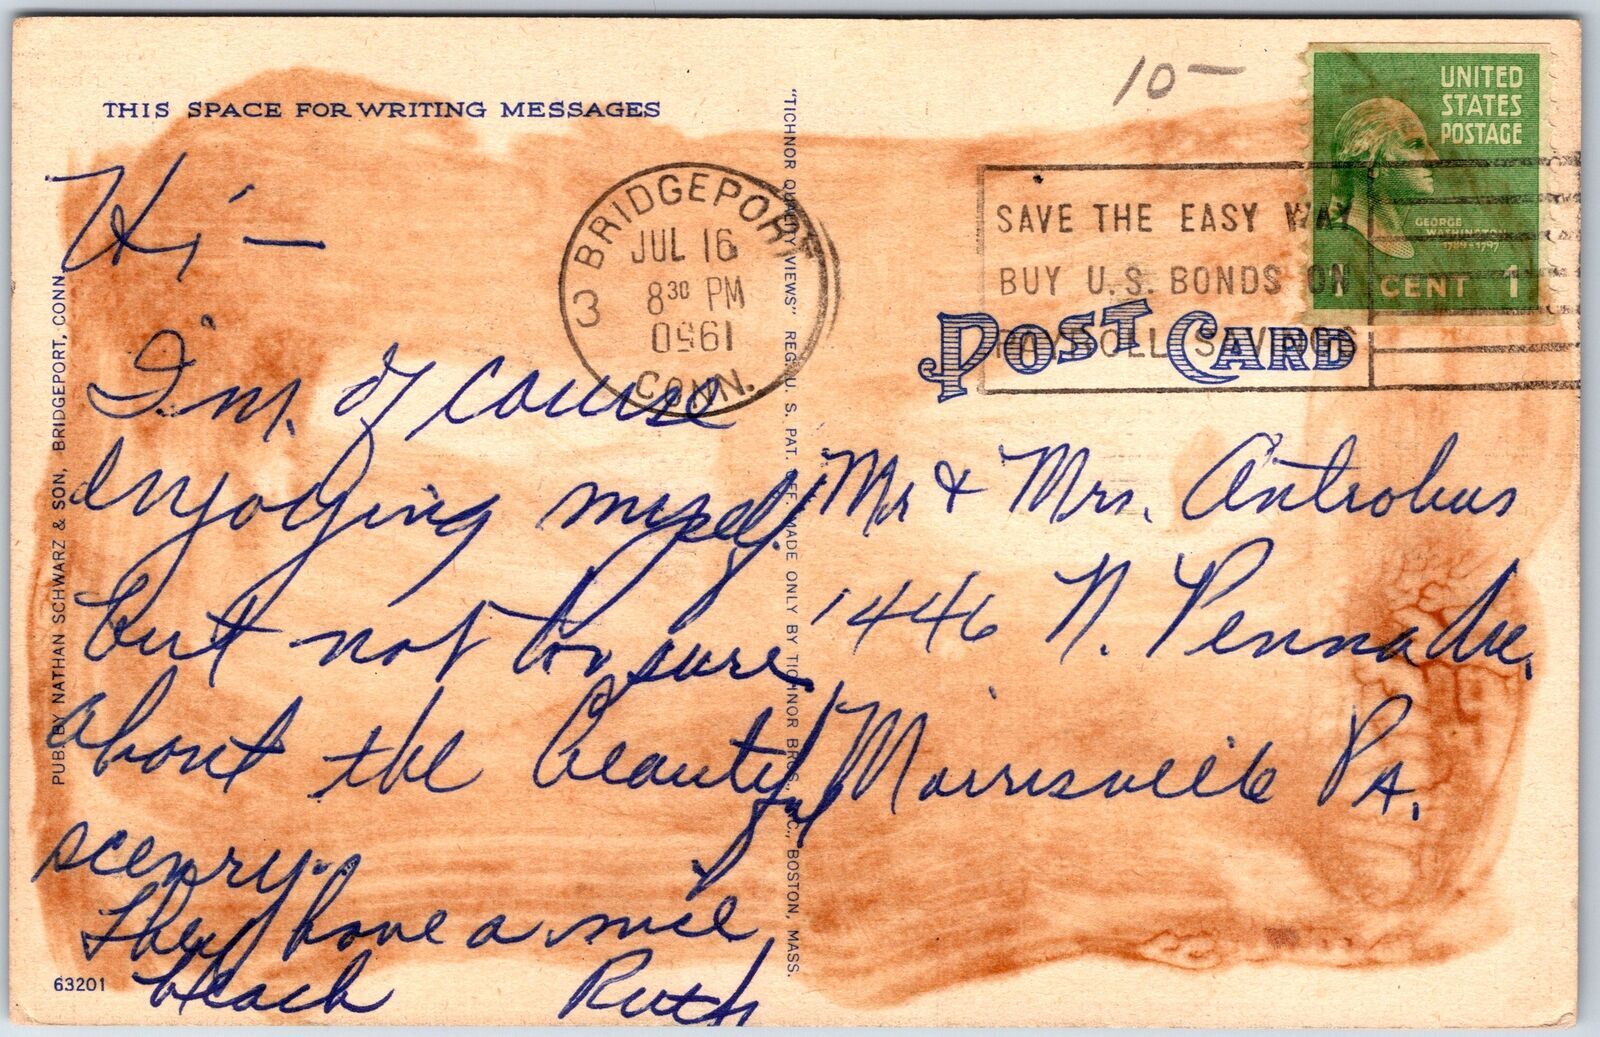 THIS SPACE FOR WRITING MESSAGES
Hi —
I'm of course
enjoying myself
but not too sure
about the beautiful
scenery.
They have a nice
beach Ruth
PUB. BY NATHAN SCHWARZ & SON, BRIDGEPORT, CONN.
63201
"TICHNOR QUALITY VIEWS" REG. U. S. PAT. OFF. MADE ONLY BY TICHNOR BROS., INC., BOSTON, MASS.
BRIDGEPORT
JUL 16
8 30 PM
1950
CONN.
3
10 —
SAVE THE EASY WAY
BUY U.S. BONDS ON
PAYROLL SAVINGS
UNITED
STATES
POSTAGE
GEORGE
WASHINGTON
1789-1797
1 CENT 1
POST CARD
Mr & Mrs. Antrobus
1446 N. Penna Ave.
Morrisville PA.